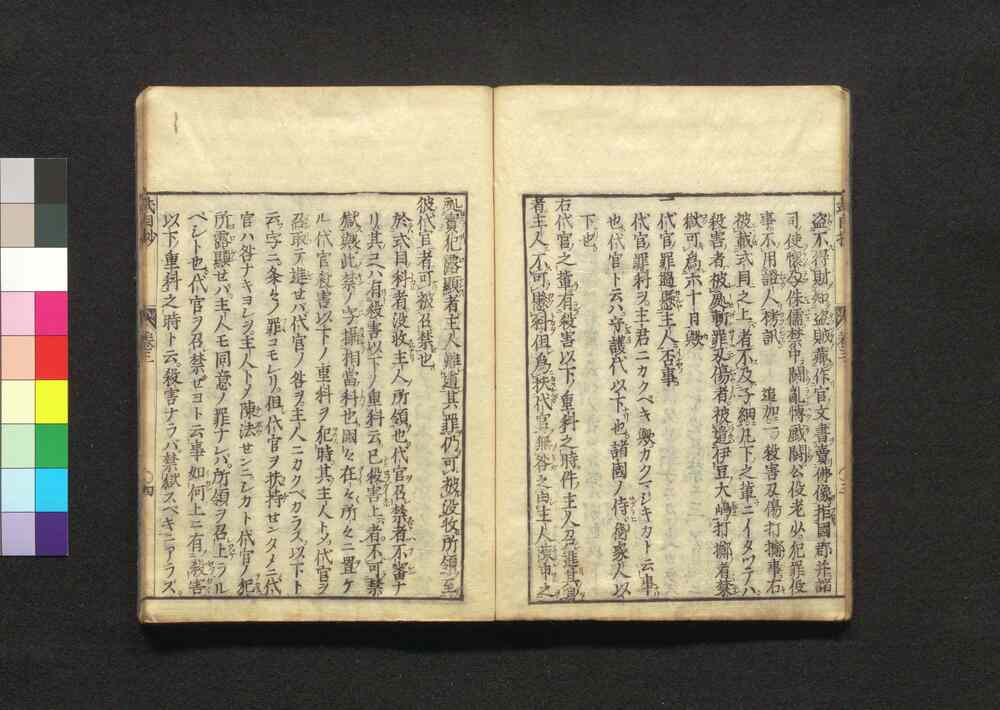 盗不得財知盗賊蔵作官文書賣佛像指國郡并諸
司使懐妊侏儒禁中闘乱博戯闘公役老少犯罪役
事不用證人拷訊 追加ニ殺害刃傷打擲事右
被載式目之上者不及子細凡下之輩ニイタツテハ
殺害者被處斬罪刃傷者被遣伊豆大嶋打擲者禁
獄可為六十日歟
一代官罪過懸主人否事
代官罪科ヲ主君ニカクベキ歟カクマジキカト云事
也代官ト云ハ守護代以下也諸國ノ侍御家人以
下也
右代官之輩有殺害以下ノ重科之時件主人召進其身
者主人不可懸科但為扶代官無咎之由主人陳申之
處實犯露顕者主人難遁其罪仍可被没收所領至
彼代官者可被召禁也
於式目科者没收主人所領也代官召禁者不審ナ
リ其ユヘハ有殺害以下ノ重科云已殺害上者不可禁
獄歟此禁ノ字攝相當科也國々在々所々ニ置ケ
ル代官殺害以下ノ重科ヲ犯時其主人トノ代官ヲ
召取テ進セバ代官ノ咎ヲ主人ニカクベカラズ以下ト
云字ニ条々ノ罪コモレリ但代官ヲ扶持センタメニ代
官ハ咎ナキヨシヲ主人トノ陳法センニシカト代官ノ犯
所露顕セバ主人モ同意ノ罪ナレバ所領ヲ召上ラル
ベシト也代官ヲ召禁ゼヨト云事如何上ニ有殺害
以下重科之時ト云殺害ナラバ禁獄スベキニアラズ
巻三